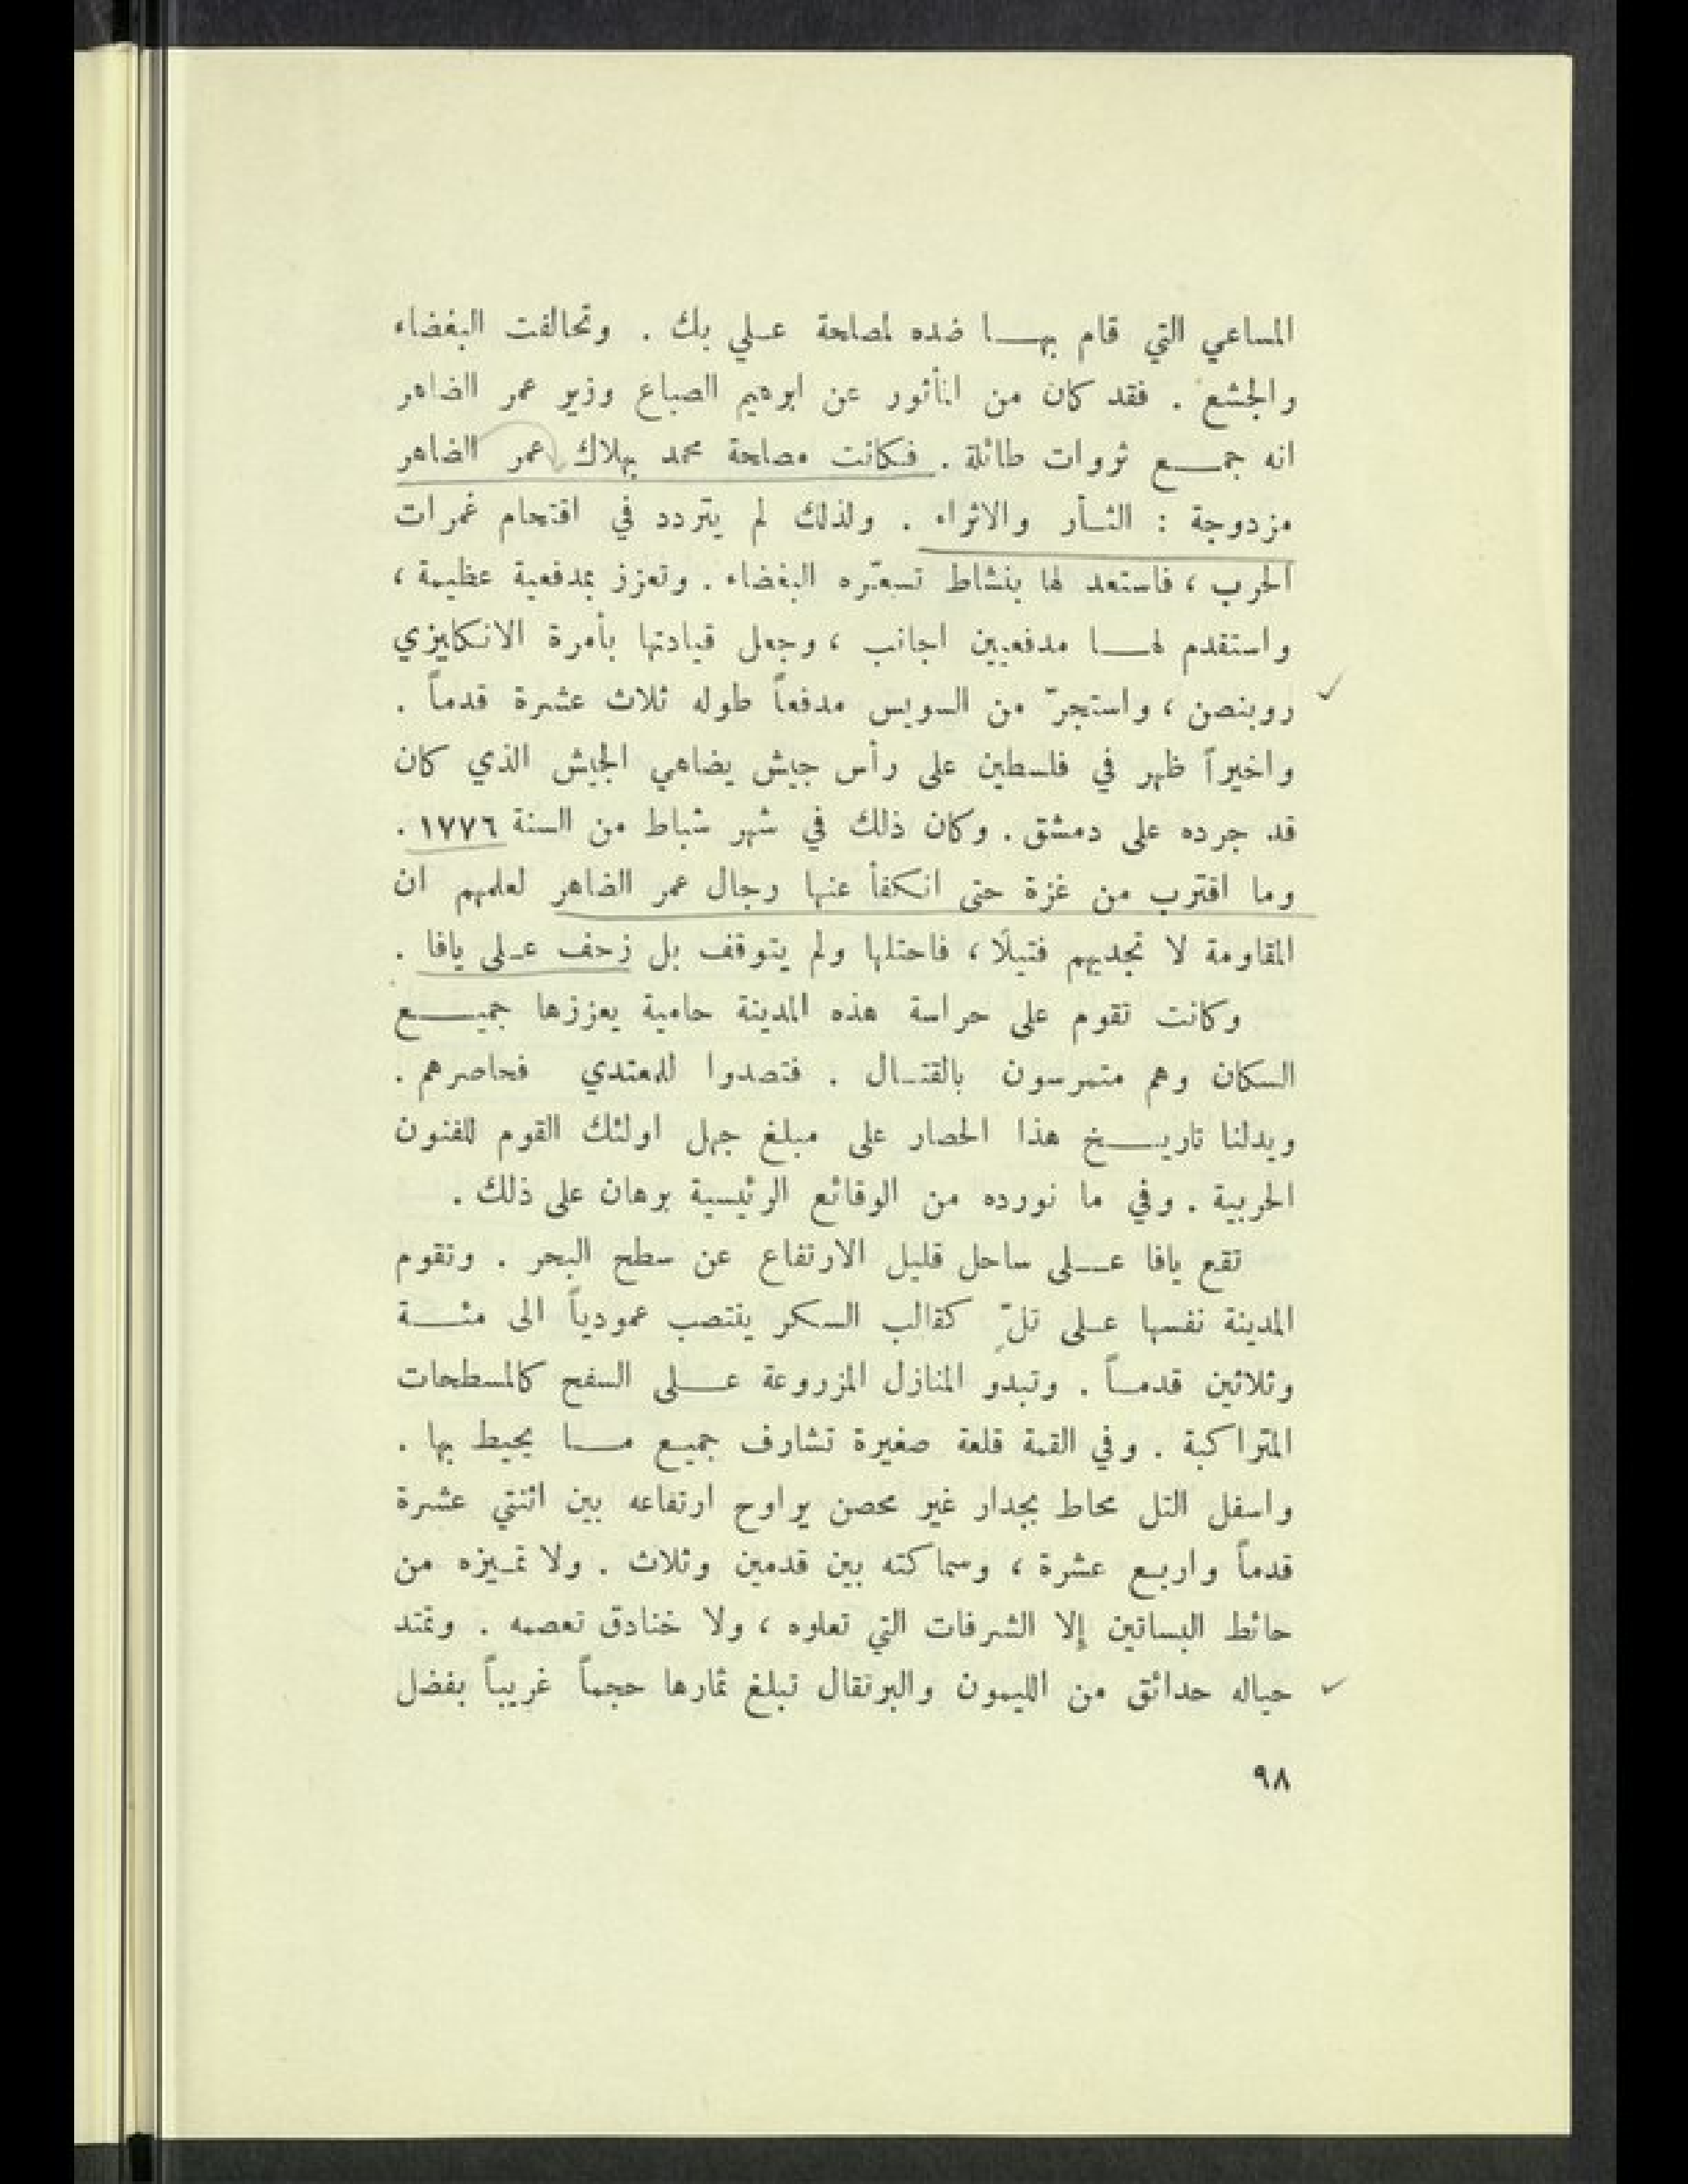 المساعي التي قام بها ضده لمصلحة علي بك . وتحالفت البغضاء
والجشع . فقد كان من المأثور عن ابرهيم الصباغ وزير عمر الضاهر
انه جمع ثروات طائلة . فكانت مصلحة محمد بهلاك عمر الضاهر
مزدوجة : الثأر والاثراء . ولذلك لم يتردد في اقتحام غمرات
الحرب ، فاستعد لها بنشاط تسعّره البغضاء . وتعزز بمدفعية عظيمة ،
واستقدم لها مدفعيين اجانب ، وجعل قيادتها بأمرة الانكليزي
روبنصن ، واستجرّ من السويس مدفعاً طوله ثلاث عشرة قدماً .
واخيراً ظهر في فلسطين على رأس جيش يضاهي الجيش الذي كان
قد جرده على دمشق . وكان ذلك في شهر شباط من السنة ١٧٧٦ .
وما اقترب من غزة حتى انكفأ عنها رجال عمر الضاهر لعلمهم ان
المقاومة لا تجديهم فتيلًا ، فاحتلها ولم يتوقف بل زحف على يافا .
وكانت تقوم على حراسة هذه المدينة حامية يعززها جميع
السكان وهم متمرسون بالقتال . فتصدوا للمعتدي فحاصرهم .
ويدلنا تاريخ هذا الحصار على مبلغ جهل اولئك القوم للفنون
الحربية . وفي ما نورده من الوقائع الرئيسية برهان على ذلك .
تقع يافا على ساحل قليل الارتفاع عن سطح البحر . وتقوم
المدينة نفسها على تلّ كقالب السكر ينتصب عمودياً الى مئة
وثلاثين قدماً . وتبدو المنازل المزروعة على السفح كالمسطحات
المتراكبة . وفي القمة قلعة صغيرة تشارف جميع ما يحيط بها .
واسفل التل محاط بجدار غير محصن يراوح ارتفاعه بين اثنتي عشرة
قدماً واربع عشرة ، وسماكته بين قدمين وثلاث . ولا تميزه من
حائط البساتين إلا الشرفات التي تعلوه ، ولا خنادق تعصمه . وتمتد
حياله حدائق من الليمون والبرتقال تبلغ ثمارها حجماً غريباً بفضل
٩٨